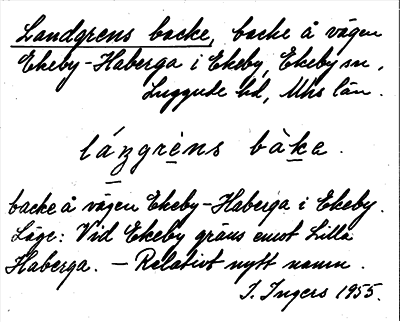 Landgrens backe, backe å vägen
Ekeby-Haberga i Ekeby, Ekeby sn,
Luggude hd, Mhs län.
lázgrèns bàka.
backe å vägen Ekeby-Haberga i Ekeby.
Läge: Vid Ekeby gräns emot Lilla
Haberga. — Relativt nytt namn.
I. Ingers 1955.